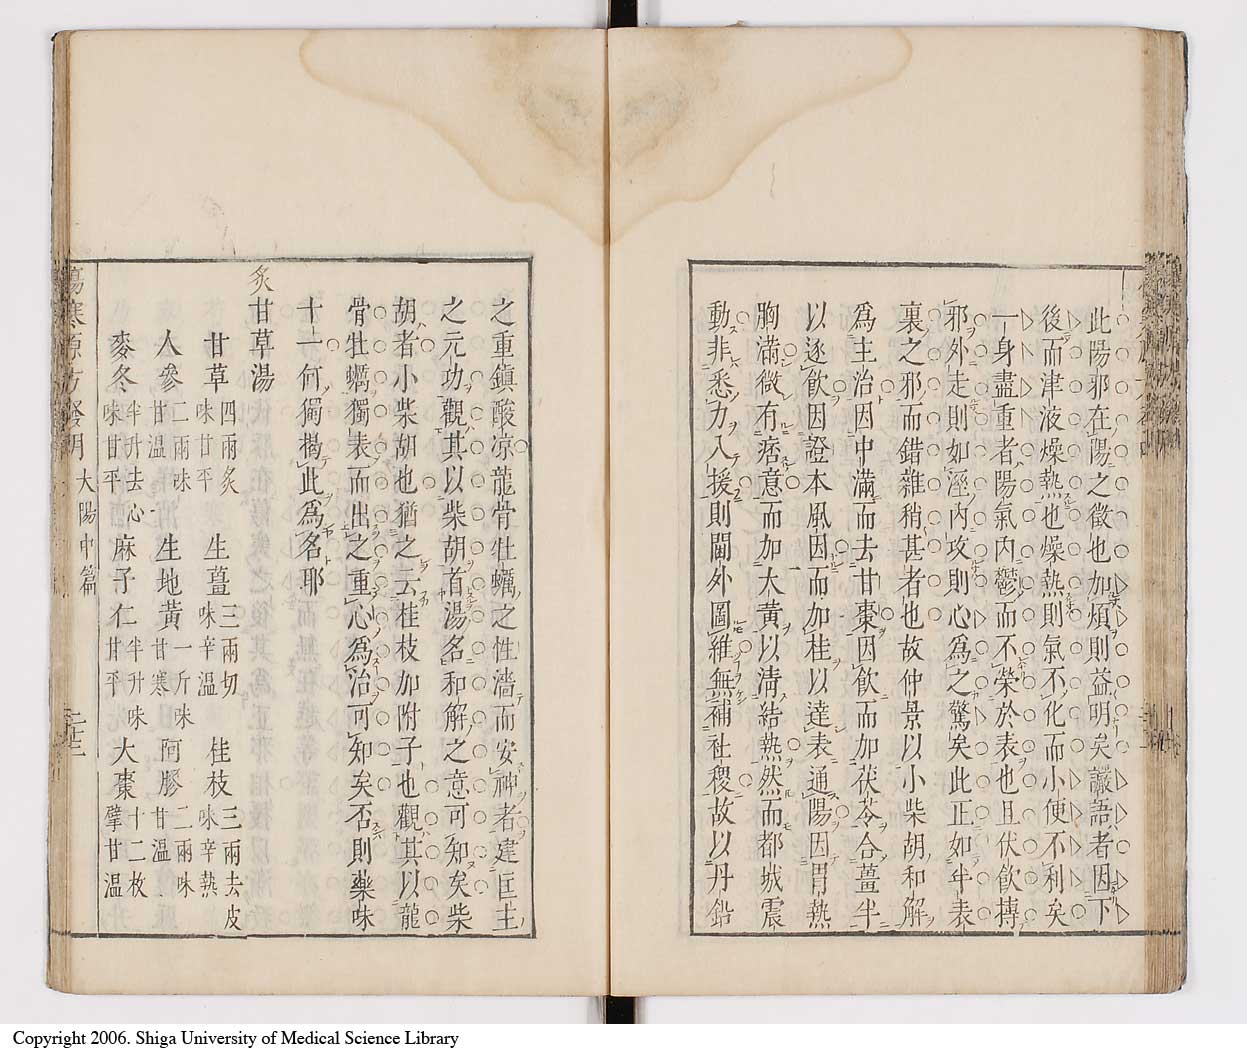 此陽邪在陽之徵也加煩則益明矣讝語者因下
後而津液燥熱也燥熱則氣不化而小便不利矣
一身盡重者陽氣内鬱而不榮於表也且伏飲摶
邪外走則如溼内攻則心爲之驚矣此正如半表
裏之邪而錯雜稍甚者也故仲景以小柴胡和解
爲主治因中滿而去甘棗因飲而加茯苓合薑半
以逐飲因證本風因而加桂以達表通陽因胃熱
胸滿微有痞意而加大黃以淸結熱然而都城震
動非悉力入援則閫外圖維無補社稷故以丹鉛
之重鎮酸凉龍骨牡蠣之性濇而安神者建匡主
之元功觀其以柴胡首湯名和解之意可知矣柴
胡者小柴胡也猶之云桂枝加附子也觀其以龍
骨牡蠣獨表而出之重心爲治可知矣否則藥味
十一何獨揭此爲名耶
炙甘草湯
甘草四兩炙味甘平 生薑三兩切味辛溫 桂枝三兩去皮味辛熱
人參二兩味甘溫 生地黃一斤味甘寒 阿膠二兩味甘溫
麥冬半升去心味甘平 麻子仁半升味甘平 大棗十二枚擘甘溫
傷寒原方發明 大陽中篇 二十三
Copyright 2006. Shiga University of Medical Science Library